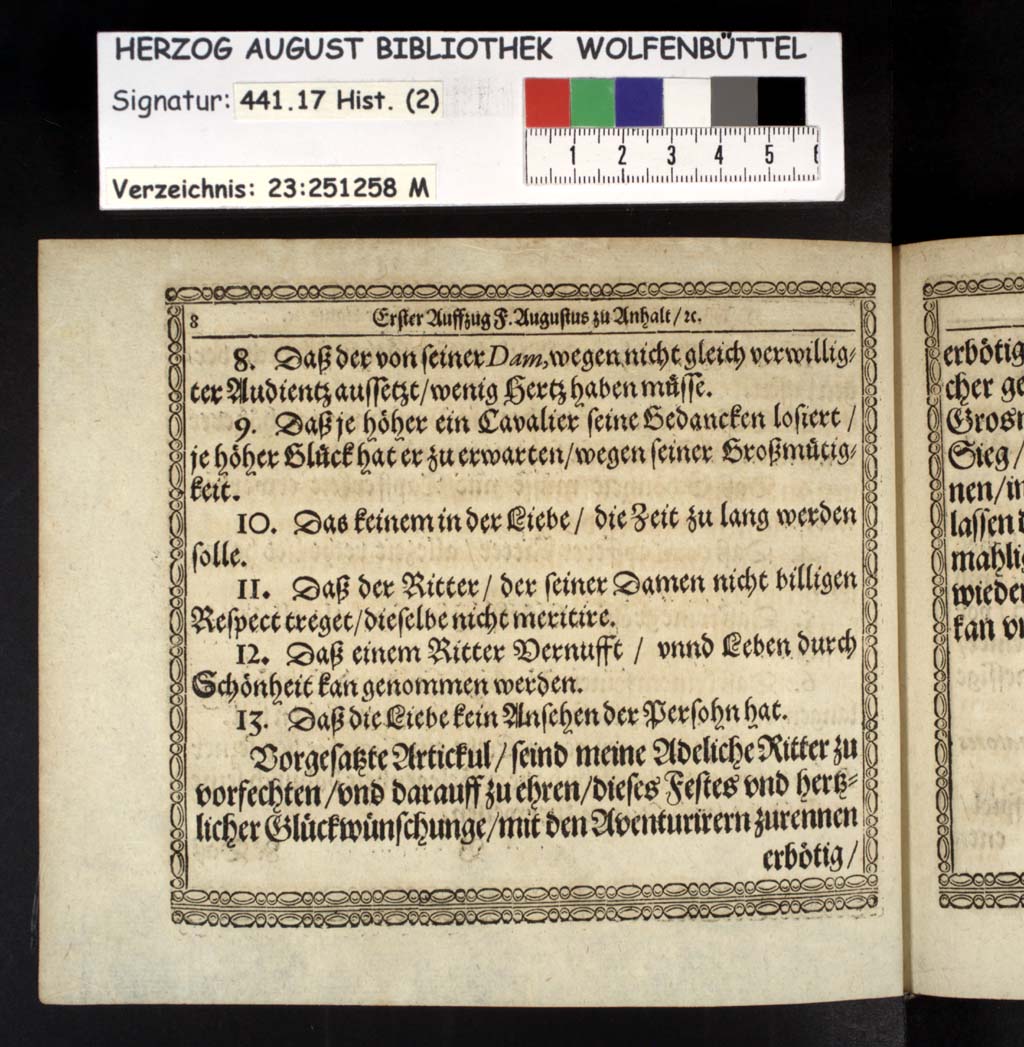 HERZOG AUGUST BIBLIOTHEK WOLFENBÜTTEL
Signatur: 441.17 Hist. (2)
1 2 3 4 5 6
Verzeichnis: 23:251258 M
8 Erster Auffzug F. Augustus zu Anhalt / ꝛc.
8. Daß der von seiner Dam, wegen nicht gleich verwillig⸗
ter Audientz aussetzt / wenig Hertz haben müsse.
9. Daß je höher ein Cavalier seine Gedancken losiert /
je höher Glück hat er zu erwarten / wegen seiner Großmütig⸗
keit.
10. Das keinem in der Liebe / die Zeit zu lang werden
solle.
11. Daß der Ritter / der seiner Damen nicht billigen
Respect treget / dieselbe nicht meritire.
12. Daß einem Ritter Vernufft / vnnd Leben durch
Schönheit kan genommen werden.
13. Daß die Liebe kein Ansehen der Persohn hat.
Vorgesatzte Artickul / seind meine Adeliche Ritter zu
vorfechten / vnd darauff zu ehren / dieses Festes vnd hertz⸗
licher Glückwünschunge / mit den Aventurirern zurennen
erbötig /
erbötig
cher ge
Sieg /
nen / in
lassen
wieder
kan